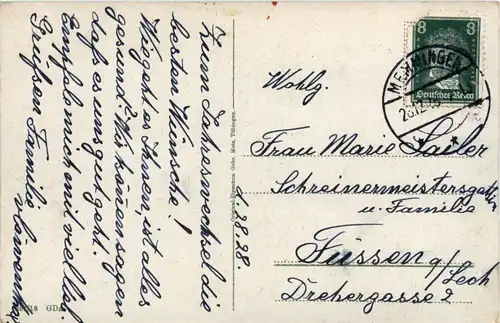 Zum Jahreswechsel die
besten Wünsche!
Wie geht es Ihnen, ist alles
gesund? Wir können sagen
daß es uns gut geht.
Empfehlen uns mit viel lieb.
Grüßen Familie
d. 28.28.
Original-Eigentum Gebr. Metz, Tübingen.
8 8
Deutsches Reich
MEMMINGEN
Wohlg.
Frau Marie Sailer
Schreinermeistersgattin
u. Familie
Füssen a/Lech
Drehergasse 2